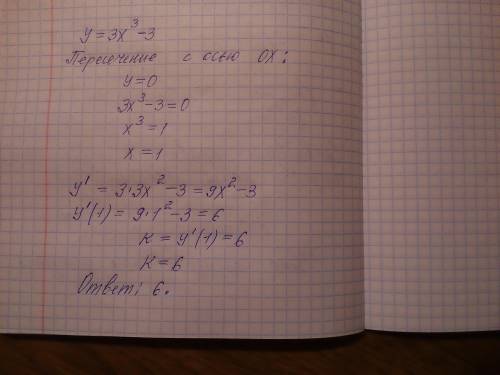 y=3x³-3
Пересечение с осью OX:
y=0
3x³-3=0
x³=1
x=1
y' = 3·3x²-3=9x²-3
y'(1)= 9·1²-3=6
K = y'(1)=6
K=6
Ответ: 6.